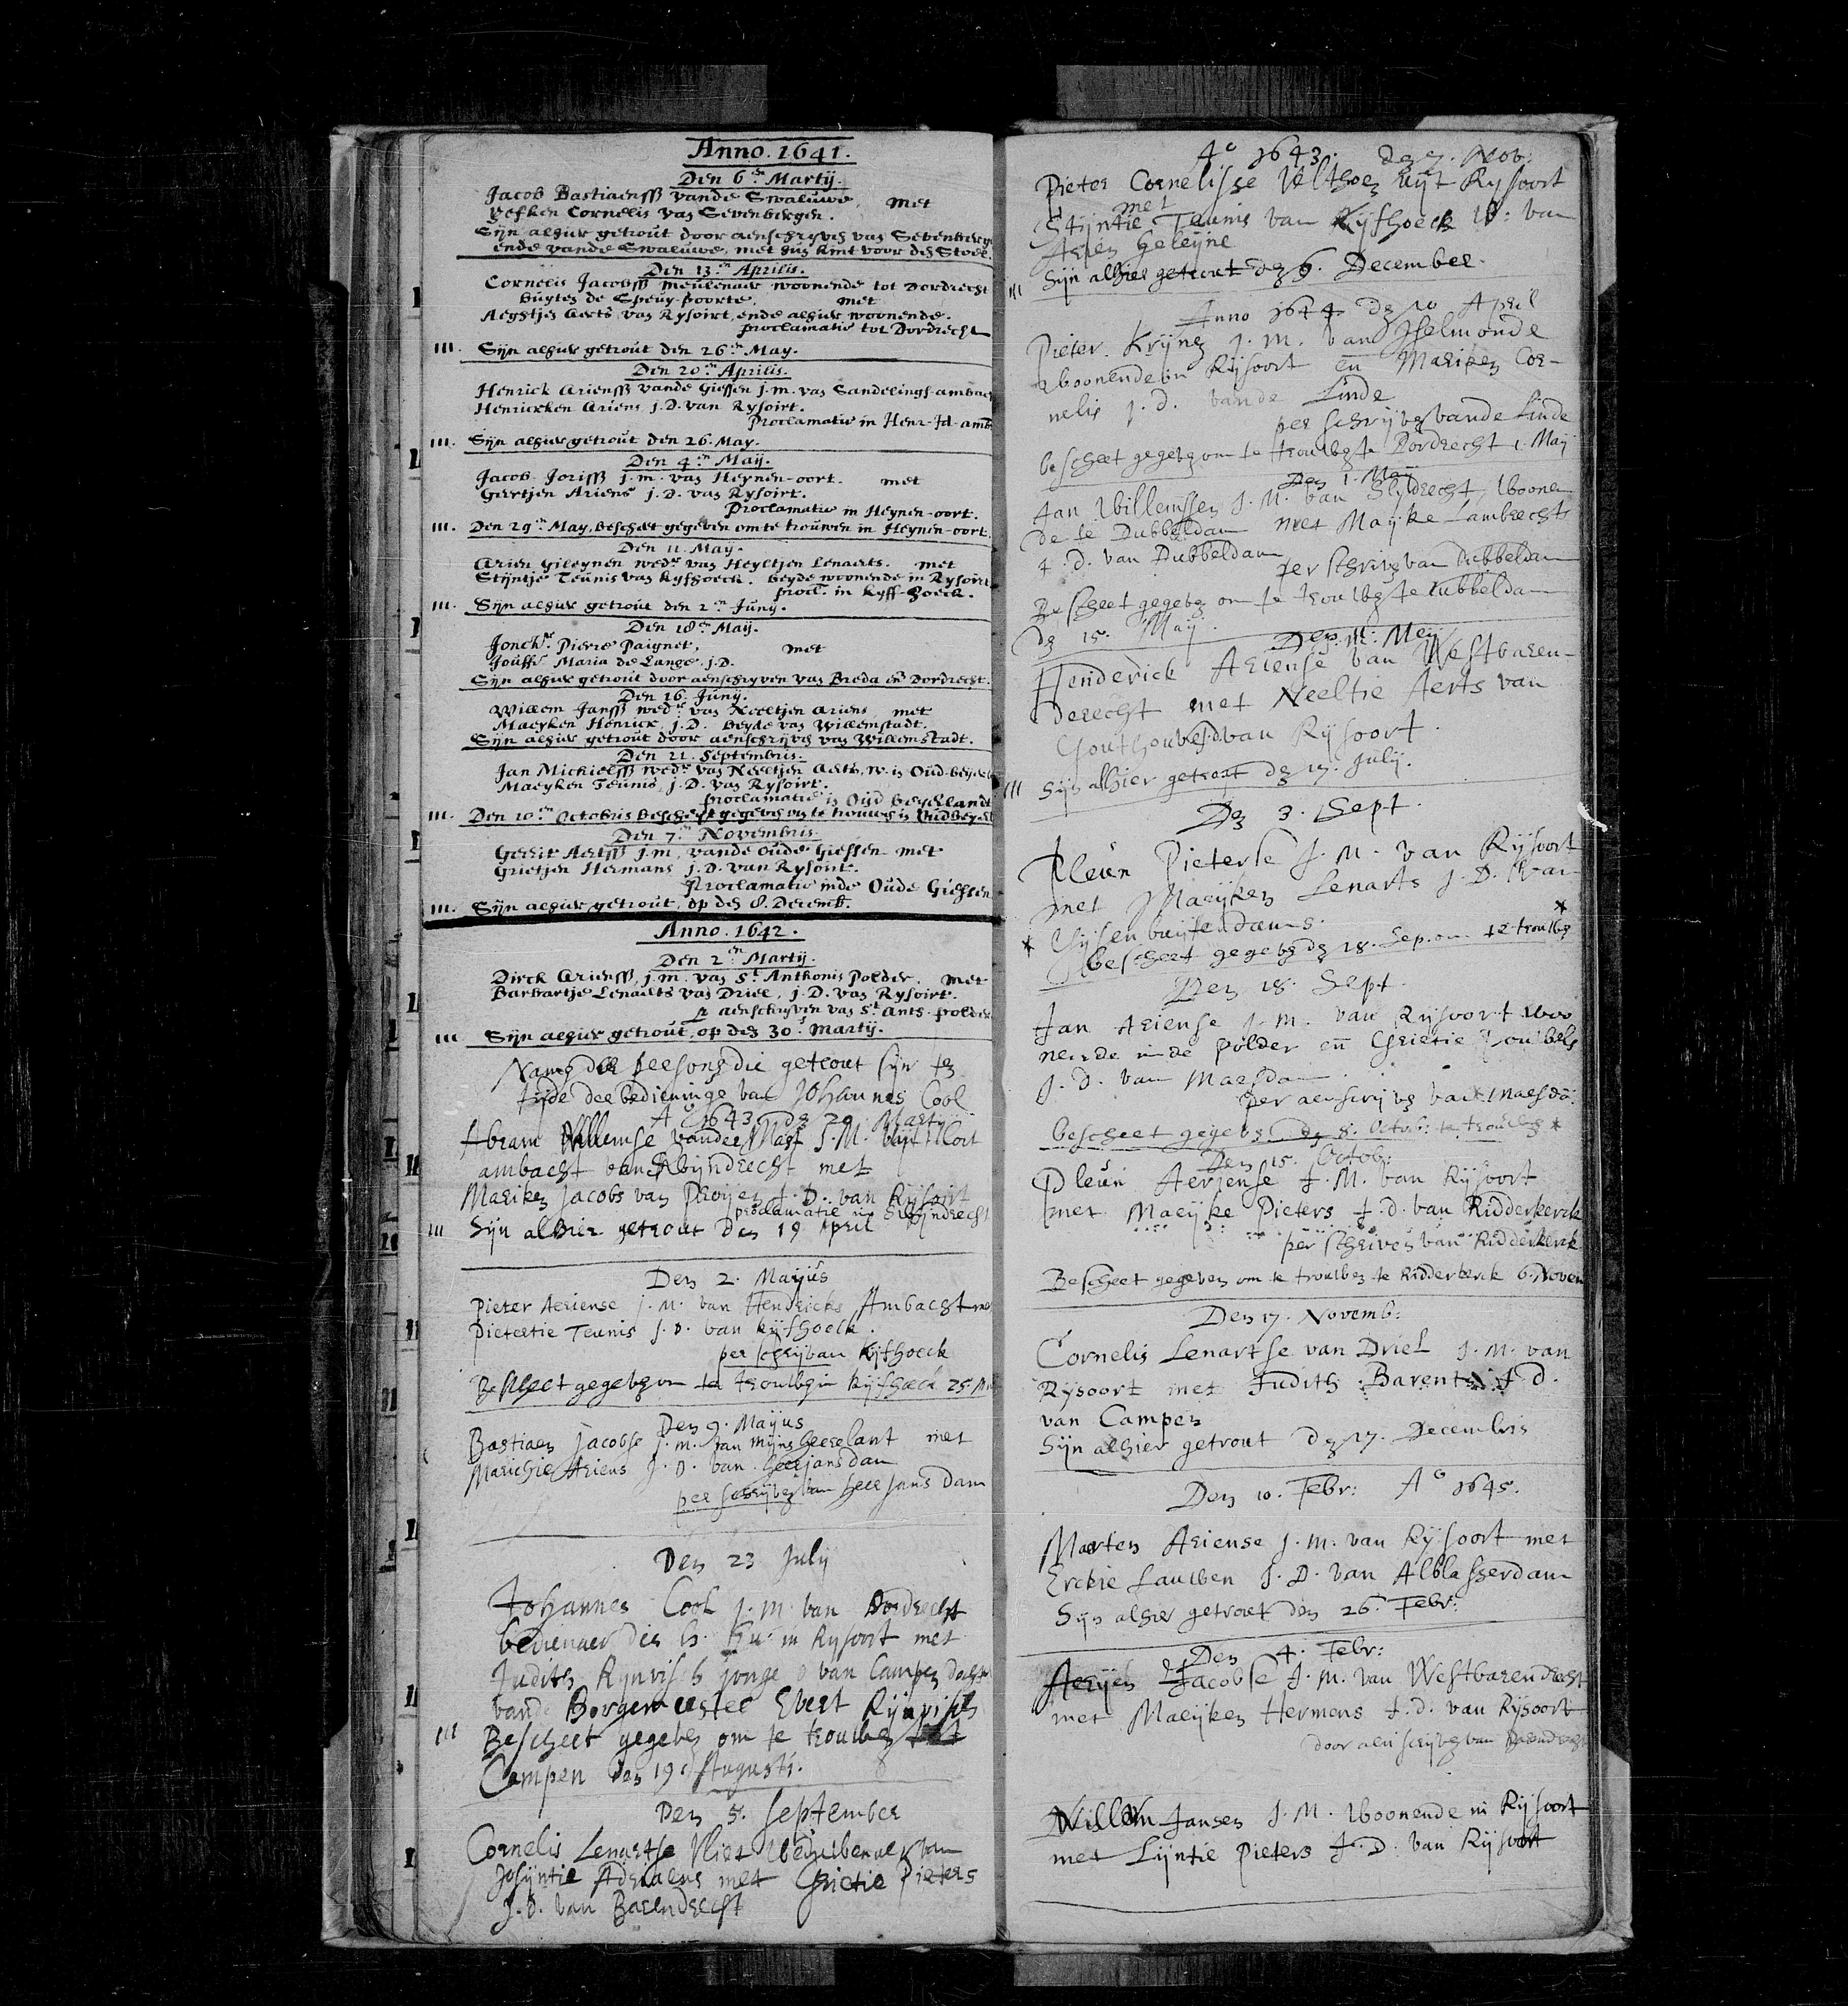 Anno. 1641.
Den 6en Martij.
Jacob Bastiaensß vande Swaluwe, met
Yefken Cornelis van Sevenbergen.
Sijn alhier getrout door aenschryven van Sevenberge
ende vande Swaluwe, met hus kint voor des
Den 13en Aprilis.
Cornelis Jacobsß meulenaer woonende tot Dordrecht
buyten de Speuy-poorte. met
Aegtjen Aerts van Rysoirt, ende alhier woonende.
proclamatie tot Dordrecht
III. Sijn alhier getrout den 26en May.
Den 20en Aprilis.
Henrick Ariensß vande Giessen j.m. van Sandelings-ambac
Henrickken Ariens j.D. van Rysoirt.
Proclamatie in Henr-Id-amb
III. Sijn alhier getrout den 26. May.
Den 4en Maij.
Jacob Jorisß j.m. van Heynen-oort. met
Geertjen Ariens j.D. van Rysoirt.
Proclamatie in Heynen-oort.
III. Den 29en May, bescheet gegeven om te trouwen in Heynen-oort.
Den 11. May.
Arien Gileynen wedr van Heyltjen Lenaerts. met
Stijntje Teunis van Kyfhoeck. beyde woonende in Rysoirt
procl. in Kyff-hoeck.
III. Sijn alhier getrout den 2en Juny.
Den 18en Maij.
Joncker Pierre Paignet, met
Jouffr Maria de Lange, j.D.
Sijn alhier getrout door aenschryven van Breda en Dordrecht.
Den 16. Juny.
Willem Jansß wedr van Neeltjen Ariens met
Maeyken Henrick, j.D. beyde van Willemstadt.
Sijn alhier getrout door aenschrijven van Willemstadt.
Den 21. Septembris.
Jan Michielsß wedr van Neeltjen Aerts, w. in Oud-beyde
Maeyken Teunis, j.D. van Rysoirt.
proclamatie in Oijd beyerlandt
III. Den 10en Octobris bescheyt gegeven om te trouwen in Oudbeyerl
Den 7en Novembris.
Gerrit Aertsß j.m. vande oude Giessen met
Grietjen Hermans j.D. van Rysoirt.
Proclamatie inde Oude Giessen
III. Sijn alhier getrout, op den 8. Decemb.
Anno. 1642.
Den 2en Martij.
Dirck Ariensß, j.m. van St Anthonis polder. met
Barbartje Lenaerts van Driel, j.D. van Rysoirt.
p aenschryven van St Ants-polder
III Sijn alhier getrout, op den 30. Martij.
Namen der persoonen die getrout sijn ten
tijde der bedieninge van Johannes Cool
Ao 1643 den 29 Martij
Abram Willemse vander Mast J.M. uyt Sloet
ambacht van Swijndrecht met
Mariken Jacobs van Proijen J.D. van Rijsoirt
proclamatie in Swijndrecht
III Sijn alhier getrout den 19 April
Den 2. Maijus
Pieter Aeriense J.M. van Hendricks Ambacht met
Pietertie Teunis J.D. van Kijfhoeck.
per schrijven van Kijfhoeck
Bescheet gegeven om te trouwen in Kijfhoeck 25. M
Den 9. Maijus
Bastiaen Jacobse J.M. van Mijnsheerelant met
Marichie Ariens J.D. van heer jansdam
per schrijven van heer Jans dam
Den 23 Julij
Johannes Cool J.M. van Dordrecht
bedienaer des in Rijsoort met
Judith Rynvisch jonge D van Campen dochter
vande Borgemeester Ebert Rijnvisch
III Bescheet gegeven om te trouwen tot
Campen den 19 Augusti.
Den 5. September
Cornelis Lenertse Vliet Weduwenaer van
Josijntie Adriaens met Grietie Pieters
J.D. van Barendrecht
Ao 1643. den 7. Nov:
Pieter Cornelisse Velthoen uijt Rijsoort
met
Stijntie Teunis van Kijfhoeck W: van
Arien Geleijne
III Sijn alhier getrout den 6. December.
Anno 1644 den 10 April
Pieter Krijnen J.M. van Iselmonde
woonende in Rijsoort en Mariken Cor-
nelis J.D. vande Linde
per schrijven vande Linde
bescheet gegeven om te trouwen te Dordrecht 1. Maij
Den 1. Maij
Jan Willemssen J.M. van Slijdrecht, Woonen
de te Dubbeldam met Maijke Lambrechts
J.D. van Dubbeldam
per schriven van Dubbeldam
Bescheet gegeven om te trouwen te Dubbeldam
den 15. Maij.
Den 11. Meij
Henderick Aeriense van Westbaren-
derecht met Neeltie Aerts van
Gouthouve J.D. van Rijsoort.
III Sijn alhier getrout den 17. Julij.
Den 3. Sept.
Pleun Pieterse J.M. van Rijsoort
met Maeijken Lenarts J.D. van
* Gijsenbuijtendams. *
bescheet gegeven den 18. Sep. om te trouwen
Den 18. Sept.
Jan Ariense J.M. van Rijsoort woo
nende inde polder en Grietie Louwels
J.D. van Maesdam
per aenscrijven van Maesdā.
bescheet gegeven den 8. Octob: te trouwen *
Den 15. Octob:
Pleun Aeriense J.M. van Rijsoort
met Maeijke Pieters J.D. van Ridderkerck
per schriven van Ridderkerck
Bescheet gegeven om te trouwen te Ridderkerck 6. Novem
Den 17. Novemb:
Cornelis Lenartse van Driel J.M. van
Rijsoort met Judith Barents J.D.
van Campen
Sijn alhier getrout den 17. Decembris
Den 10. Febr: Ao 1645.
Marten Ariense J.M. van Rijsoort met
Erckie Lauwen J.D. van Alblasserdam
Sijn alhier getrout den 26. Febr:
Den 4. Febr:
Aerijen Jacobse J.M. van Westbarendrecht
met Maeijken Hermens J.D. van Rijsoort
door aen scrijven van Barendrecht
Willem Jansen J.M. Woonende in Rijsoort
met Lijntie Pieters J.D. van Rijsoort